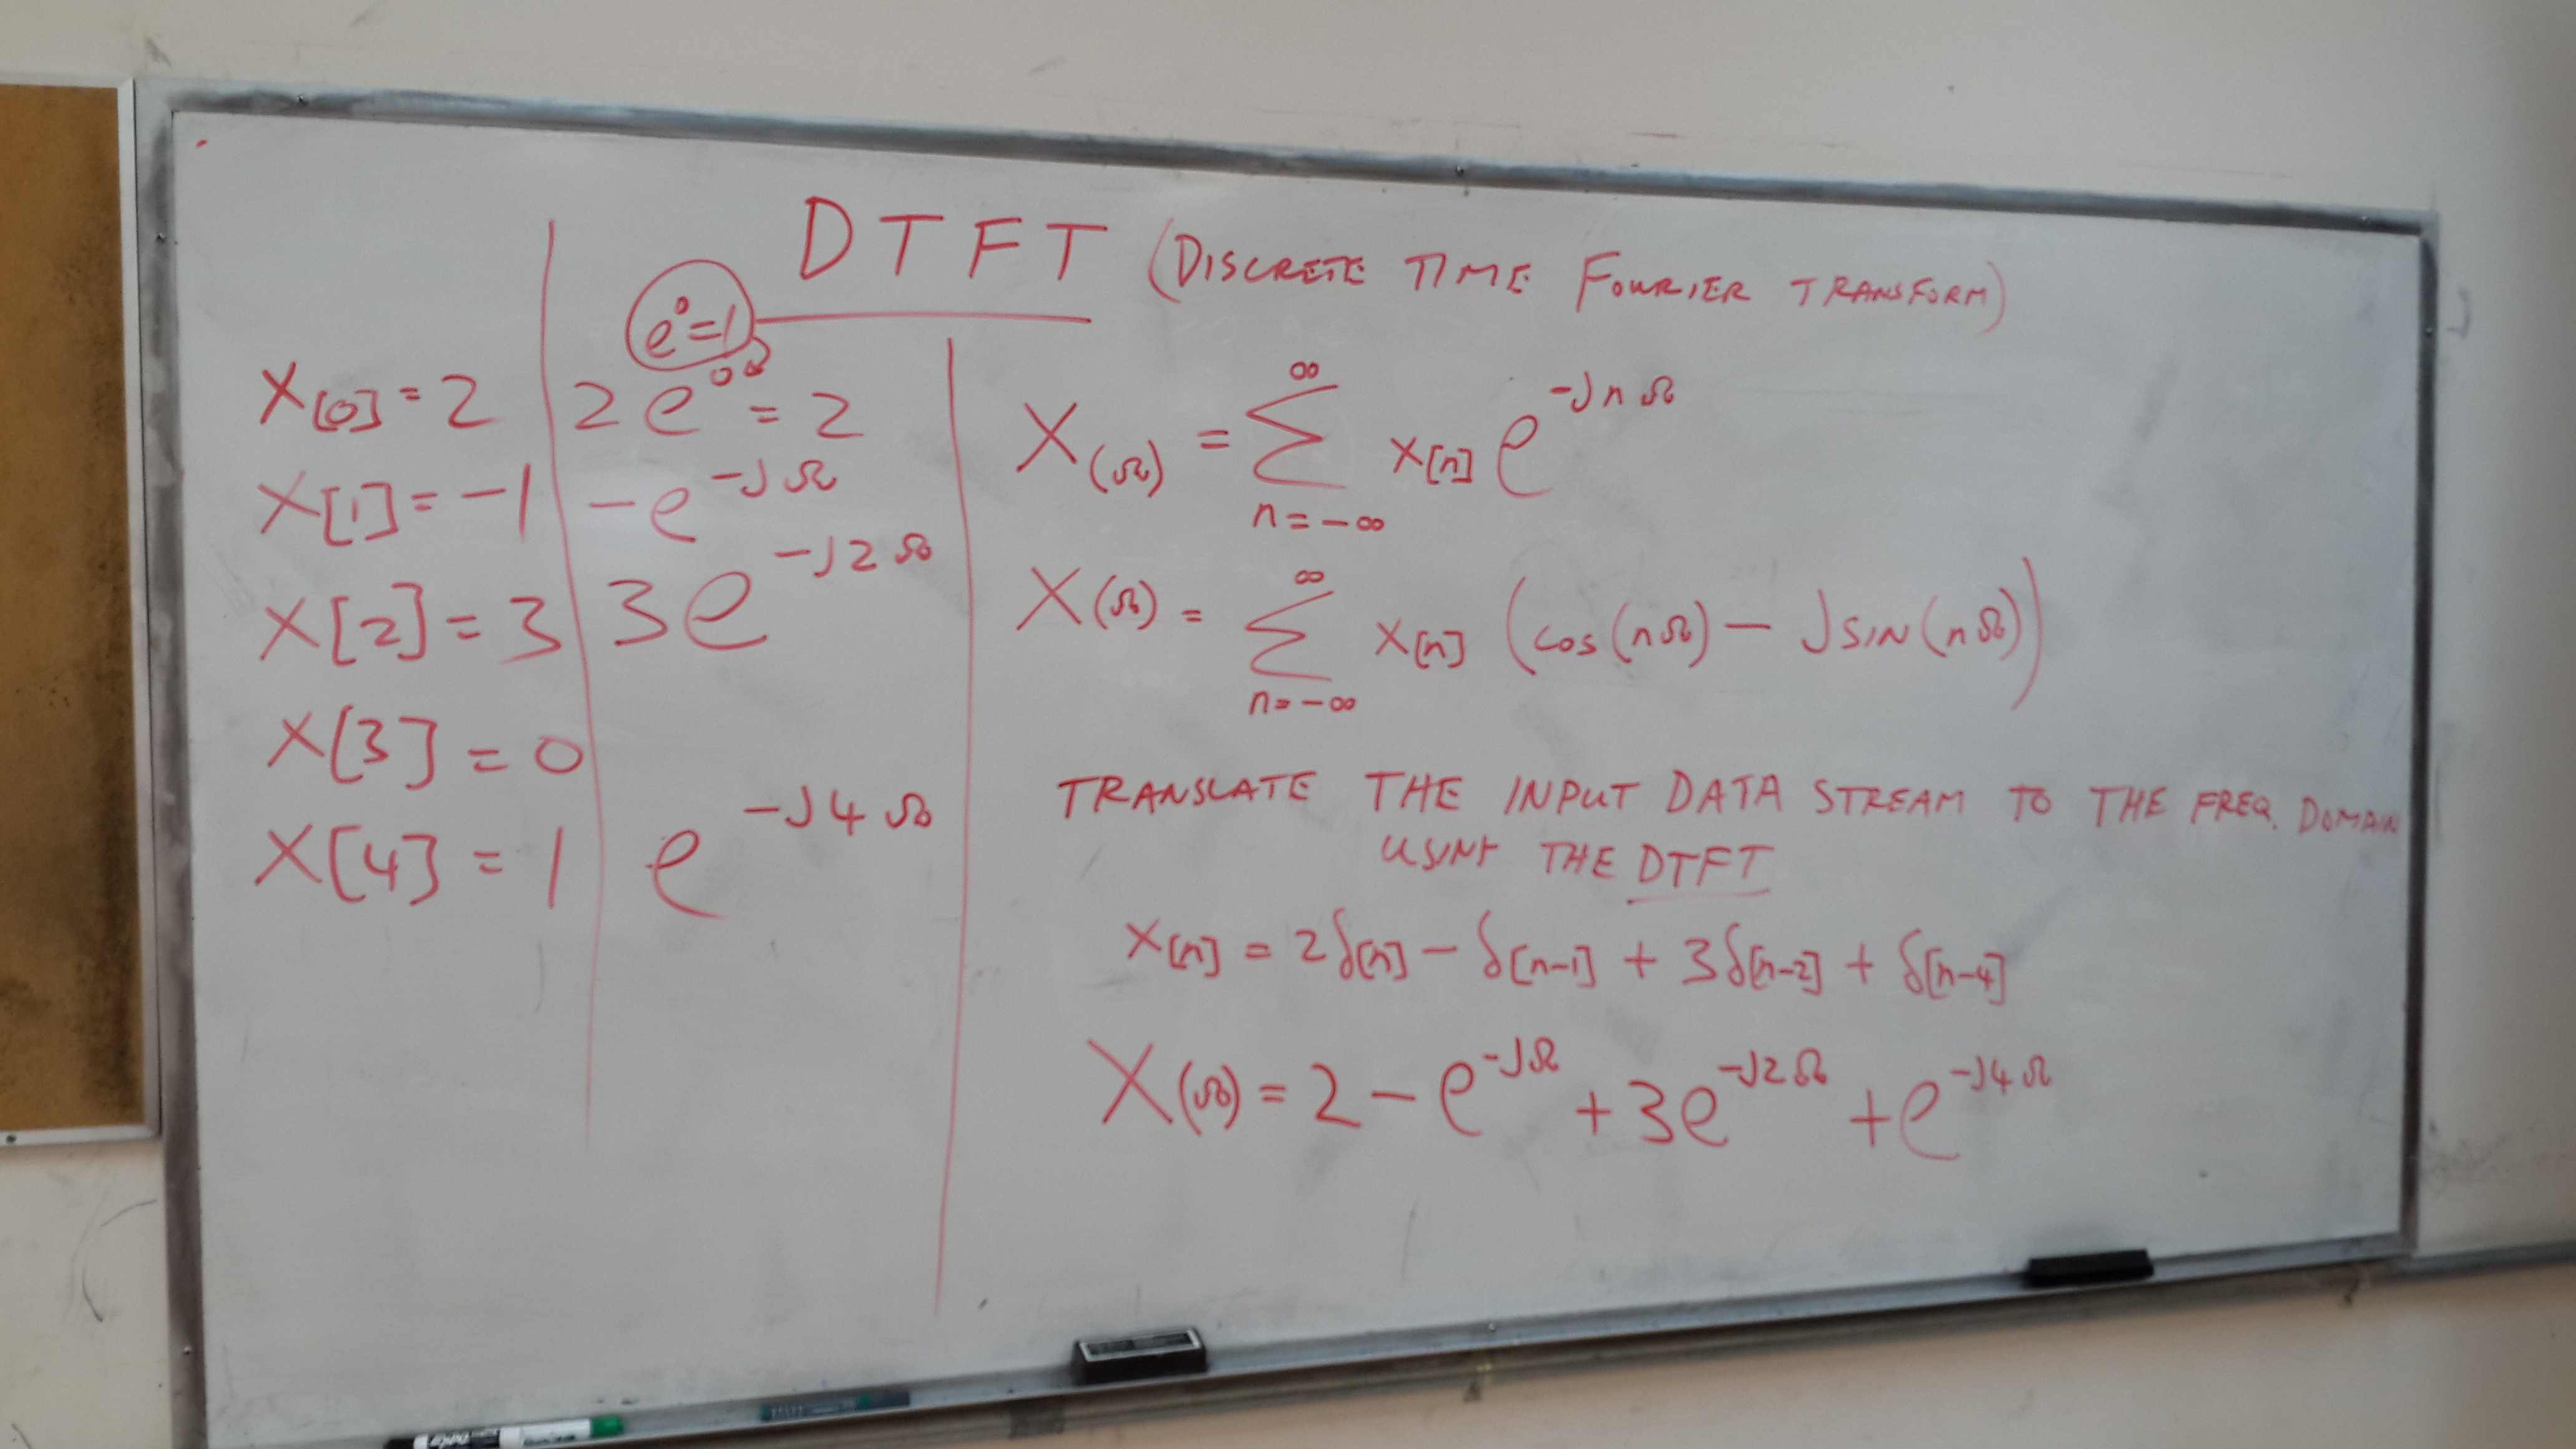 DTFT (DISCRETE TIME FOURIER TRANSFORM)
e⁰=1
X[0] = 2
X[1] = -1
X[2] = 3
X[3] = 0
X[4] = 1
2e⁰ = 2
-e^{-JΩ}
3e^{-J2Ω}
e^{-J4Ω}
X(Ω) = ∑_{n=-∞}^{∞} x[n] e^{-JnΩ}
X(Ω) = ∑_{n=-∞}^{∞} x[n] (cos(nΩ) - J SIN(nΩ))
TRANSLATE THE INPUT DATA STREAM TO THE FREQ. DOMAIN
USING THE DTFT
x[n] = 2δ[n] - δ[n-1] + 3δ[n-2] + δ[n-4]
X(Ω) = 2 - e^{-JΩ} + 3e^{-J2Ω} + e^{-J4Ω}
EXPO